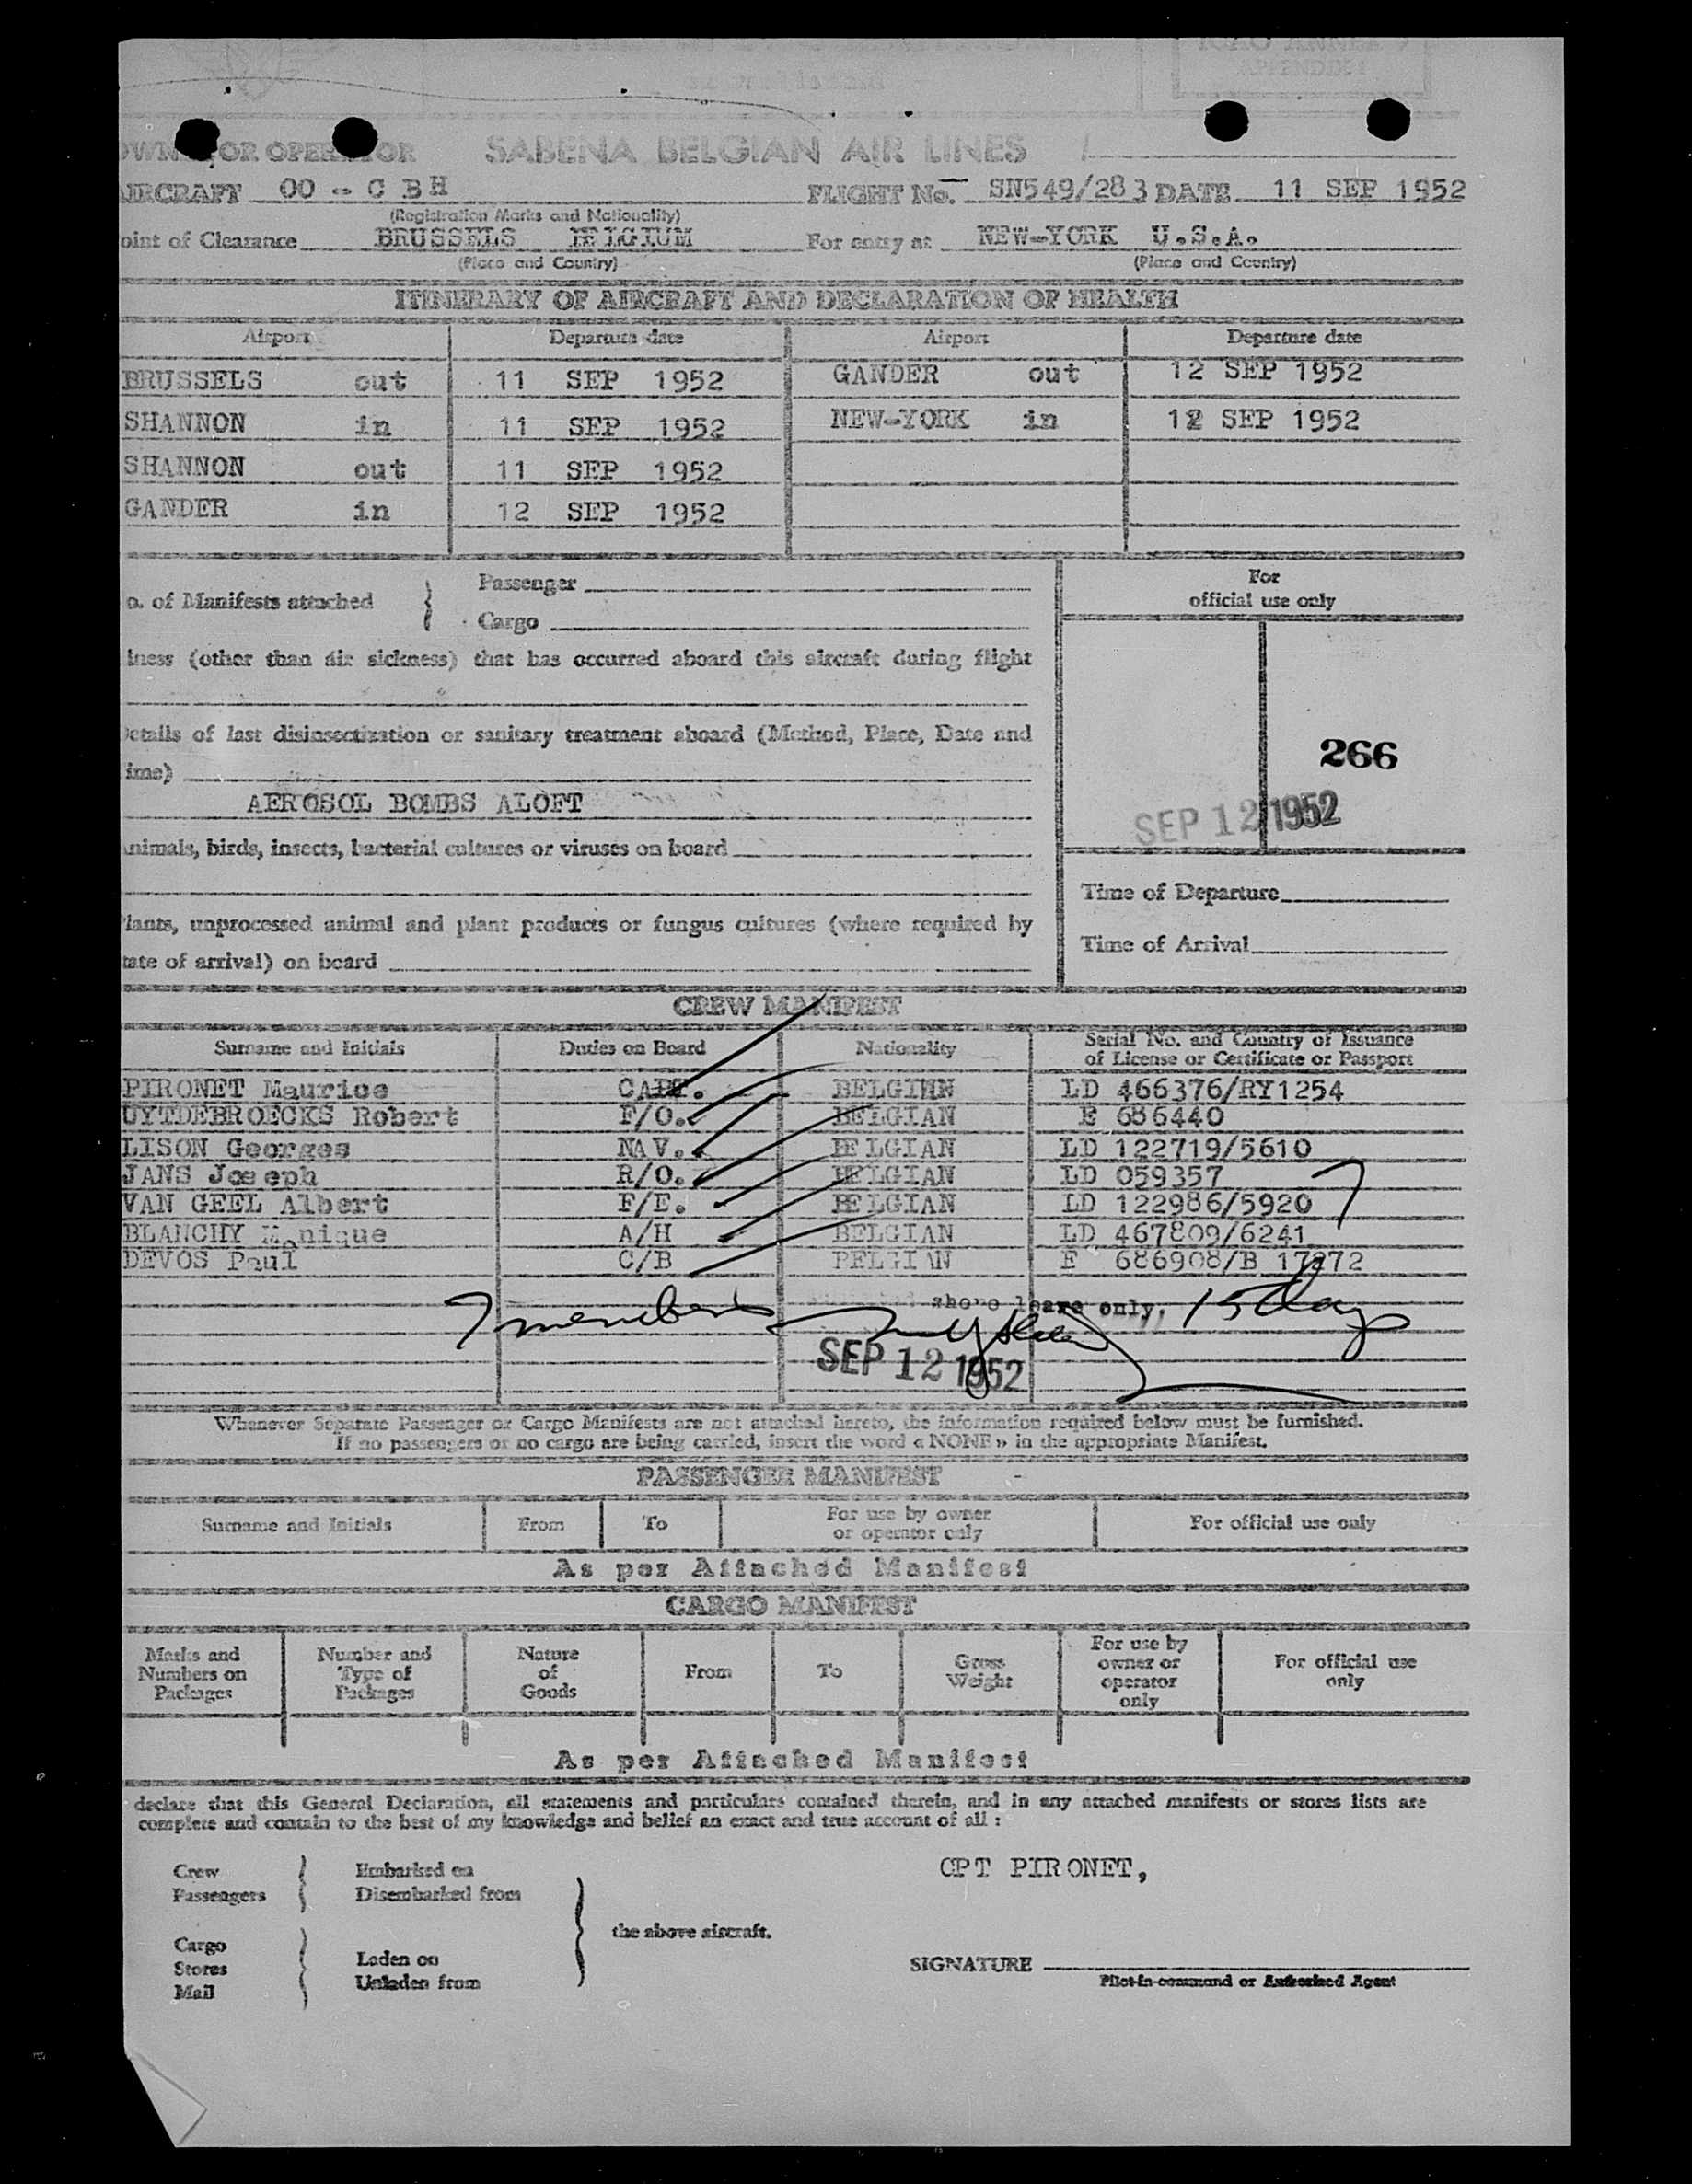 ICAO ANNEX 9
APPENDIX 1
OR OPERATOR SABENA BELGIAN AIR LINES
AIRCRAFT OO - C B H FLIGHT No. SN549/283 DATE 11 SEP 1952
(Registration Marks and Nationality)
oint of Clearance BRUSSELS BELGIUM For entry at NEW-YORK U.S.A.
(Place and Country) (Place and Country)
ITINERARY OF AIRCRAFT AND DECLARATION OF HEALTH
Airport Departure date Airport Departure date
BRUSSELS out 11 SEP 1952 GANDER out 12 SEP 1952
SHANNON in 11 SEP 1952 NEW-YORK in 12 SEP 1952
SHANNON out 11 SEP 1952
GANDER in 12 SEP 1952
o. of Manifests attached Passenger
Cargo
For
official use only
lness (other than air sickness) that has occurred aboard this aircraft during flight
etails of last disinsectization or sanitary treatment aboard (Method, Place, Date and
ime)
AEROSOL BOMBS ALOFT
266
SEP 12 1952
nimals, birds, insects, bacterial cultures or viruses on board
Time of Departure
lants, unprocessed animal and plant products or fungus cultures (where required by
tate of arrival) on board
Time of Arrival
CREW MANIFEST
Surname and Initials Duties on Board Nationality Serial No. and Country of Issuance
of License or Certificate or Passport
PIRONET Maurice CAPT. BELGIAN LD 466376/RY1254
UYTDEBROECKS Robert F/O. BELGIAN E 686440
LISON Georges NAV. BELGIAN LD 122719/5610
JANS Joseph R/O. BELGIAN LD 059357
VAN GEEL Albert F/E. BELGIAN LD 122986/5920
BLANCHY Monique A/H BELGIAN LD 467809/6241
DEVOS Paul C/B BELGIAN E 686908/B 17272
7
shore leave only,
7 members 15 day
SEP 12 1952
Whenever Separate Passenger or Cargo Manifests are not attached hereto, the information required below must be furnished.
If no passengers or no cargo are being carried, insert the word « NONE » in the appropriate Manifest.
PASSENGER MANIFEST
Surname and Initials From To For use by owner
or operator only For official use only
As per Attached Manifest
CARGO MANIFEST
Marks and
Numbers on
Packages Number and
Type of
Packages Nature
of
Goods From To Gross
Weight For use by
owner or
operator
only For official use
only
As per Attached Manifest
declare that this General Declaration, all statements and particulars contained therein, and in any attached manifests or stores lists are
complete and contain to the best of my knowledge and belief an exact and true account of all :
Crew Embarked on
Passengers Disembarked from
CPT PIRONET,
the above aircraft.
Cargo
Stores Laden on
Mail Unladen from
SIGNATURE
Pilot-in-command or Authorized Agent